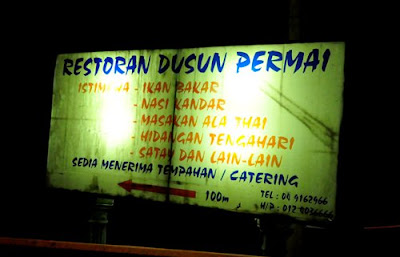 RESTORAN DUSUN PERMAI
ISTIMEWA - IKAN BAKAR
- NASI KANDAR
- MASAKAN ALA THAI
- HIDANGAN TENGAHARI
- SATAY DAN LAIN-LAIN
SEDIA MENERIMA TEMPAHAN / CATERING
100m
TEL :
H/P : 012